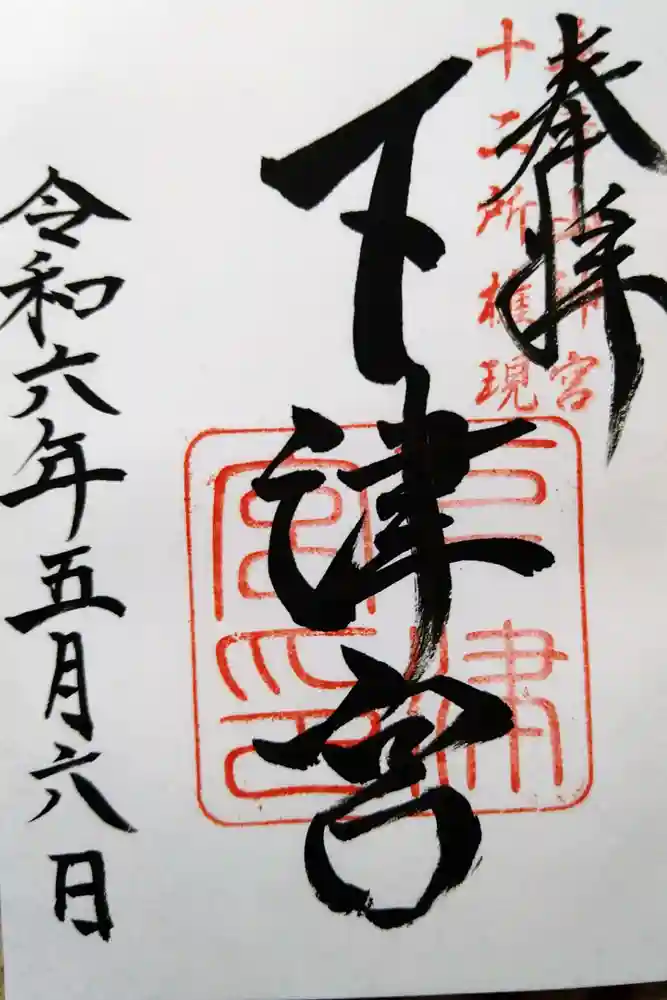 奉拝
十二所権現
下津宮
下津宮印
令和六年五月六日